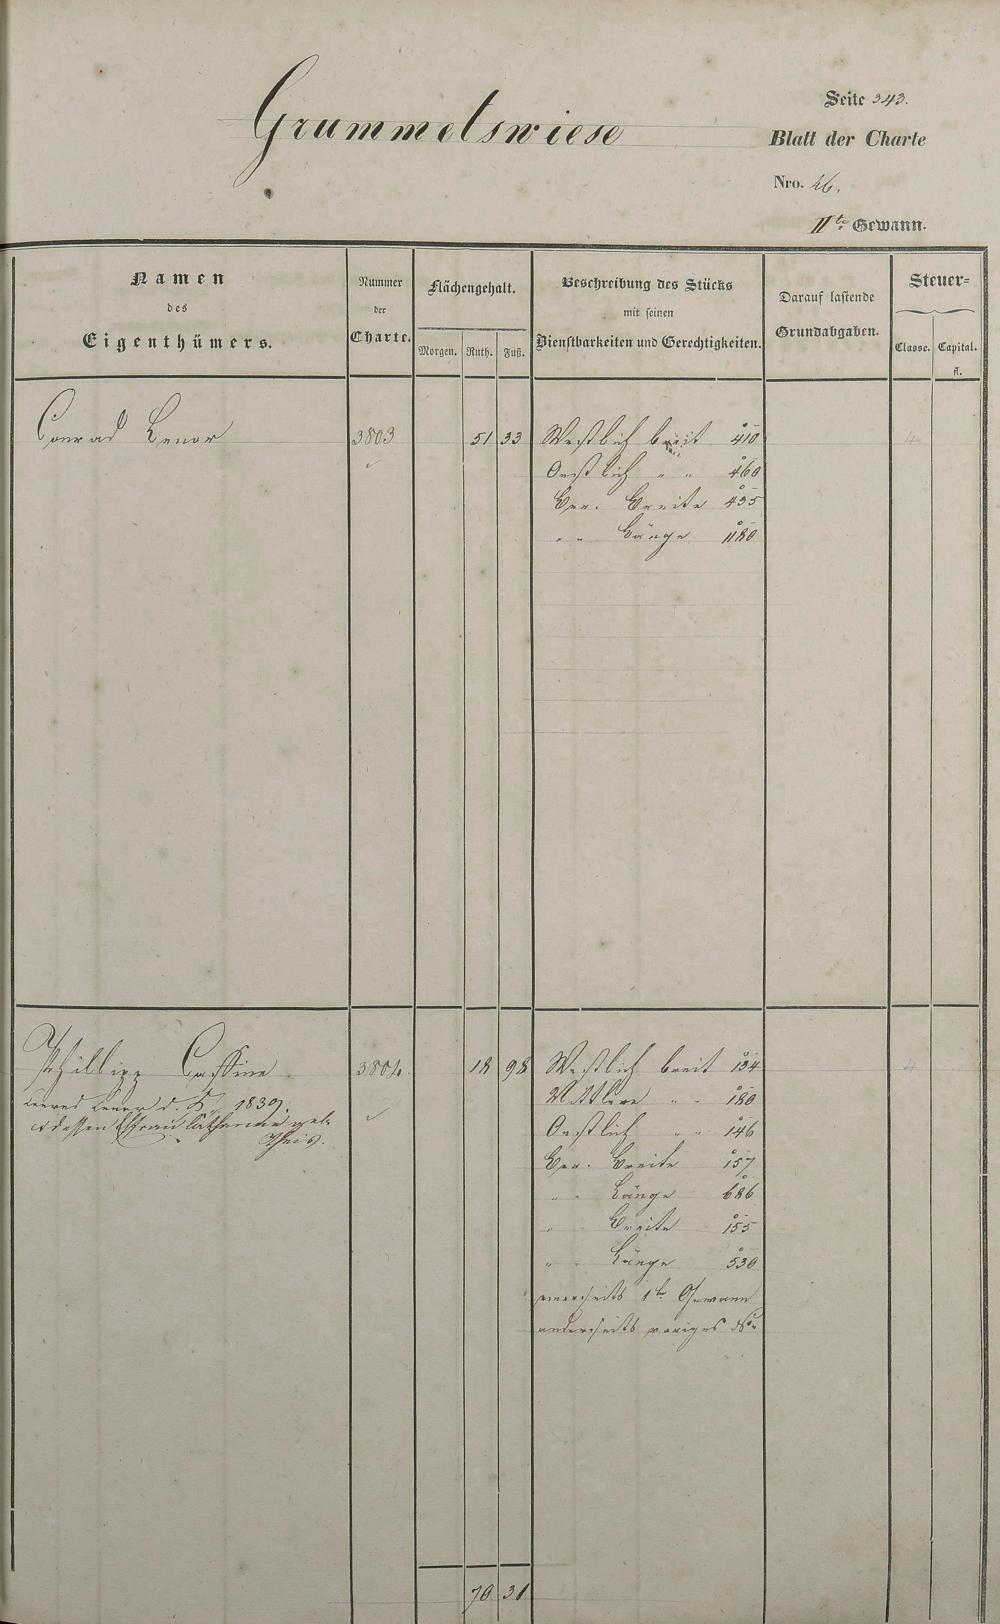 Grummetswiese
Seite 343.
Blatt der Charte
Nro. 26.
IIte Gewann.
Namen
des
Eigenthümers.
Nummer
der
Charte.
Flächengehalt.
Morgen. Ruth. Fuß.
Beschreibung des Stücks
mit seinen
Dienstbarkeiten und Gerechtigkeiten.
Darauf lastende
Grundabgaben.
Steuer-
Classe. Capital.
fl.
Conrad Lenor 3803 51 33 Westlich breit 410 4
Oestlich " " 460
Ber. Breite 435
" " Länge 1180
Phillipp Cassine 3804 18 98 Westlich breit 134 4
Mittlere " " 180
Conrad Lenor d. K. 1839.
& dessen Ehefrau Catharine geb. Theis.
Oestlich " " 146
Ber. Breite 157
" " Länge 686
" " Breite 155
" " Länge 530
einerseits 1te Gewann
anderseits voriges Nro
70 31